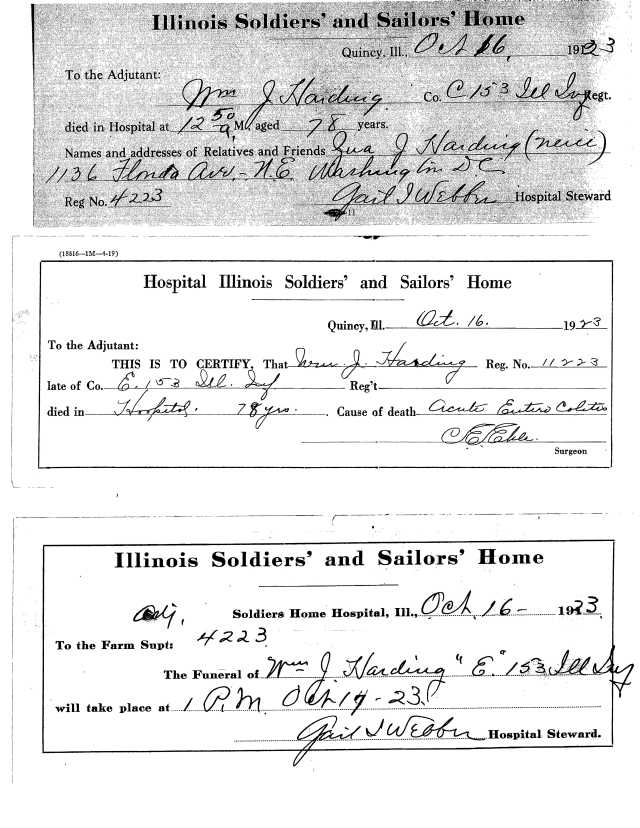 Illinois Soldiers' and Sailors' Home
Quincy, Ill., Oct 16, 1923
To the Adjutant:
Wm J Harding Co. C 153 Ill Inf Regt.
died in Hospital at 12 50 a M., aged 78 years.
Names and addresses of Relatives and Friends J Harding (neice)
1136 Florida Ave, - N.E. Washington DC
Reg No. 4223 Gail I Webber Hospital Steward
11
(18616—15M—4-19)
Hospital Illinois Soldiers' and Sailors' Home
Quincy, Ill. Oct. 16. 1923
To the Adjutant:
THIS IS TO CERTIFY, That Wm. J. Harding Reg. No. 11223
late of Co. E. 153 Ill. Inf Reg't
died in Hospital. 78 yrs. Cause of death Acute Entero Colitis
C E
Surgeon
Illinois Soldiers' and Sailors' Home
Adj, Soldiers Home Hospital, Ill., Oct, 16 - 1923
To the Farm Supt: 4223
The Funeral of Wm J Harding "E" 153 Ill Inf
will take place at 1 P.M. Oct 17 - 23
Gail I Webber Hospital Steward.